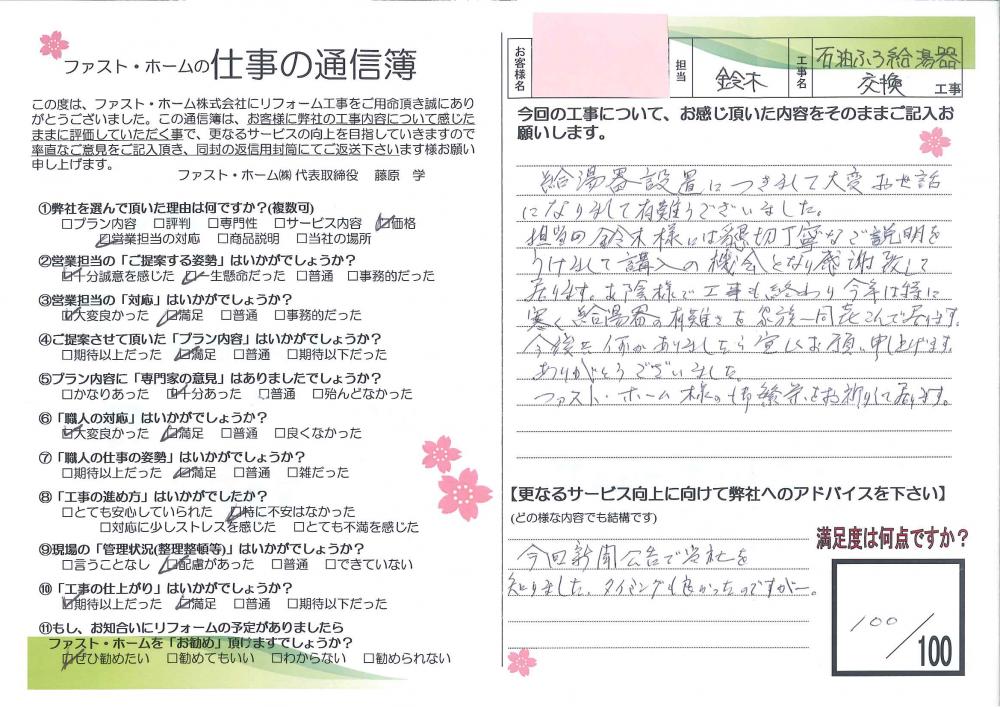 ファスト・ホームの仕事の通信簿
この度は、ファスト・ホーム株式会社にリフォーム工事をご用命頂き誠にあり
がとうございました。この通信簿は、お客様に弊社の工事内容について感じた
ままに評価していただく事で、更なるサービスの向上を目指していきますので
率直なご意見をご記入頂き、同封の返信用封筒にてご返送下さいます様お願い
申し上げます。
ファスト・ホーム㈱ 代表取締役 藤原 学
①弊社を選んで頂いた理由は何ですか？(複数可)
□プラン内容 □評判 □専門性 □サービス内容 ☑価格
☑営業担当の対応 □商品説明 □当社の場所
②営業担当の「ご提案する姿勢」はいかがでしょうか？
☑十分誠意を感じた ☑一生懸命だった □普通 □事務的だった
③営業担当の「対応」はいかがでしょうか？
☑大変良かった ☑満足 □普通 □事務的だった
④ご提案させて頂いた「プラン内容」はいかがでしょうか？
□期待以上だった ☑満足 □普通 □期待以下だった
⑤プラン内容に「専門家の意見」はありましたでしょうか？
□かなりあった ☑十分あった □普通 □殆んどなかった
⑥「職人の対応」はいかがでしょうか？
☑大変良かった ☑満足 □普通 □良くなかった
⑦「職人の仕事の姿勢」はいかがでしょうか？
□期待以上だった ☑満足 □普通 □雑だった
⑧「工事の進め方」はいかがでしたか？
□とても安心していられた ☑特に不安はなかった
□対応に少しストレスを感じた □とても不満を感じた
⑨現場の「管理状況(整理整頓等)」はいかがでしょうか？
□言うことなし ☑配慮があった □普通 □できていない
⑩「工事の仕上がり」はいかがでしょうか？
☑期待以上だった ☑満足 □普通 □期待以下だった
⑪もし、お知合いにリフォームの予定がありましたら
ファスト・ホームを「お勧め」頂けますでしょうか？
☑ぜひ勧めたい □勧めてもいい □わからない □勧められない
お客様名
担当 鈴木
工事名 石油ふろ給湯器
交換 工事
今回の工事について、お感じ頂いた内容をそのままご記入お
願いします。
給湯器設置につきまして大変お世話
になりまして有難うございました。
担当の鈴木様には懇切丁寧なご説明を
うけまして購入の機会となり感謝致して
居ります。お陰様で工事も終わり今年は特に
寒く給湯器の有難さを家族一同喜こんで居ります。
今後共何かありましたら宜しくお願い申し上げます。
ありがとうございました。
ファスト・ホーム様の御繁栄をお祈りして居ります。
【更なるサービス向上に向けて弊社へのアドバイスを下さい】
(どの様な内容でも結構です)
今回新聞広告で当社を
知りました。タイミングも良かったのですが―。
満足度は何点ですか？
100／100